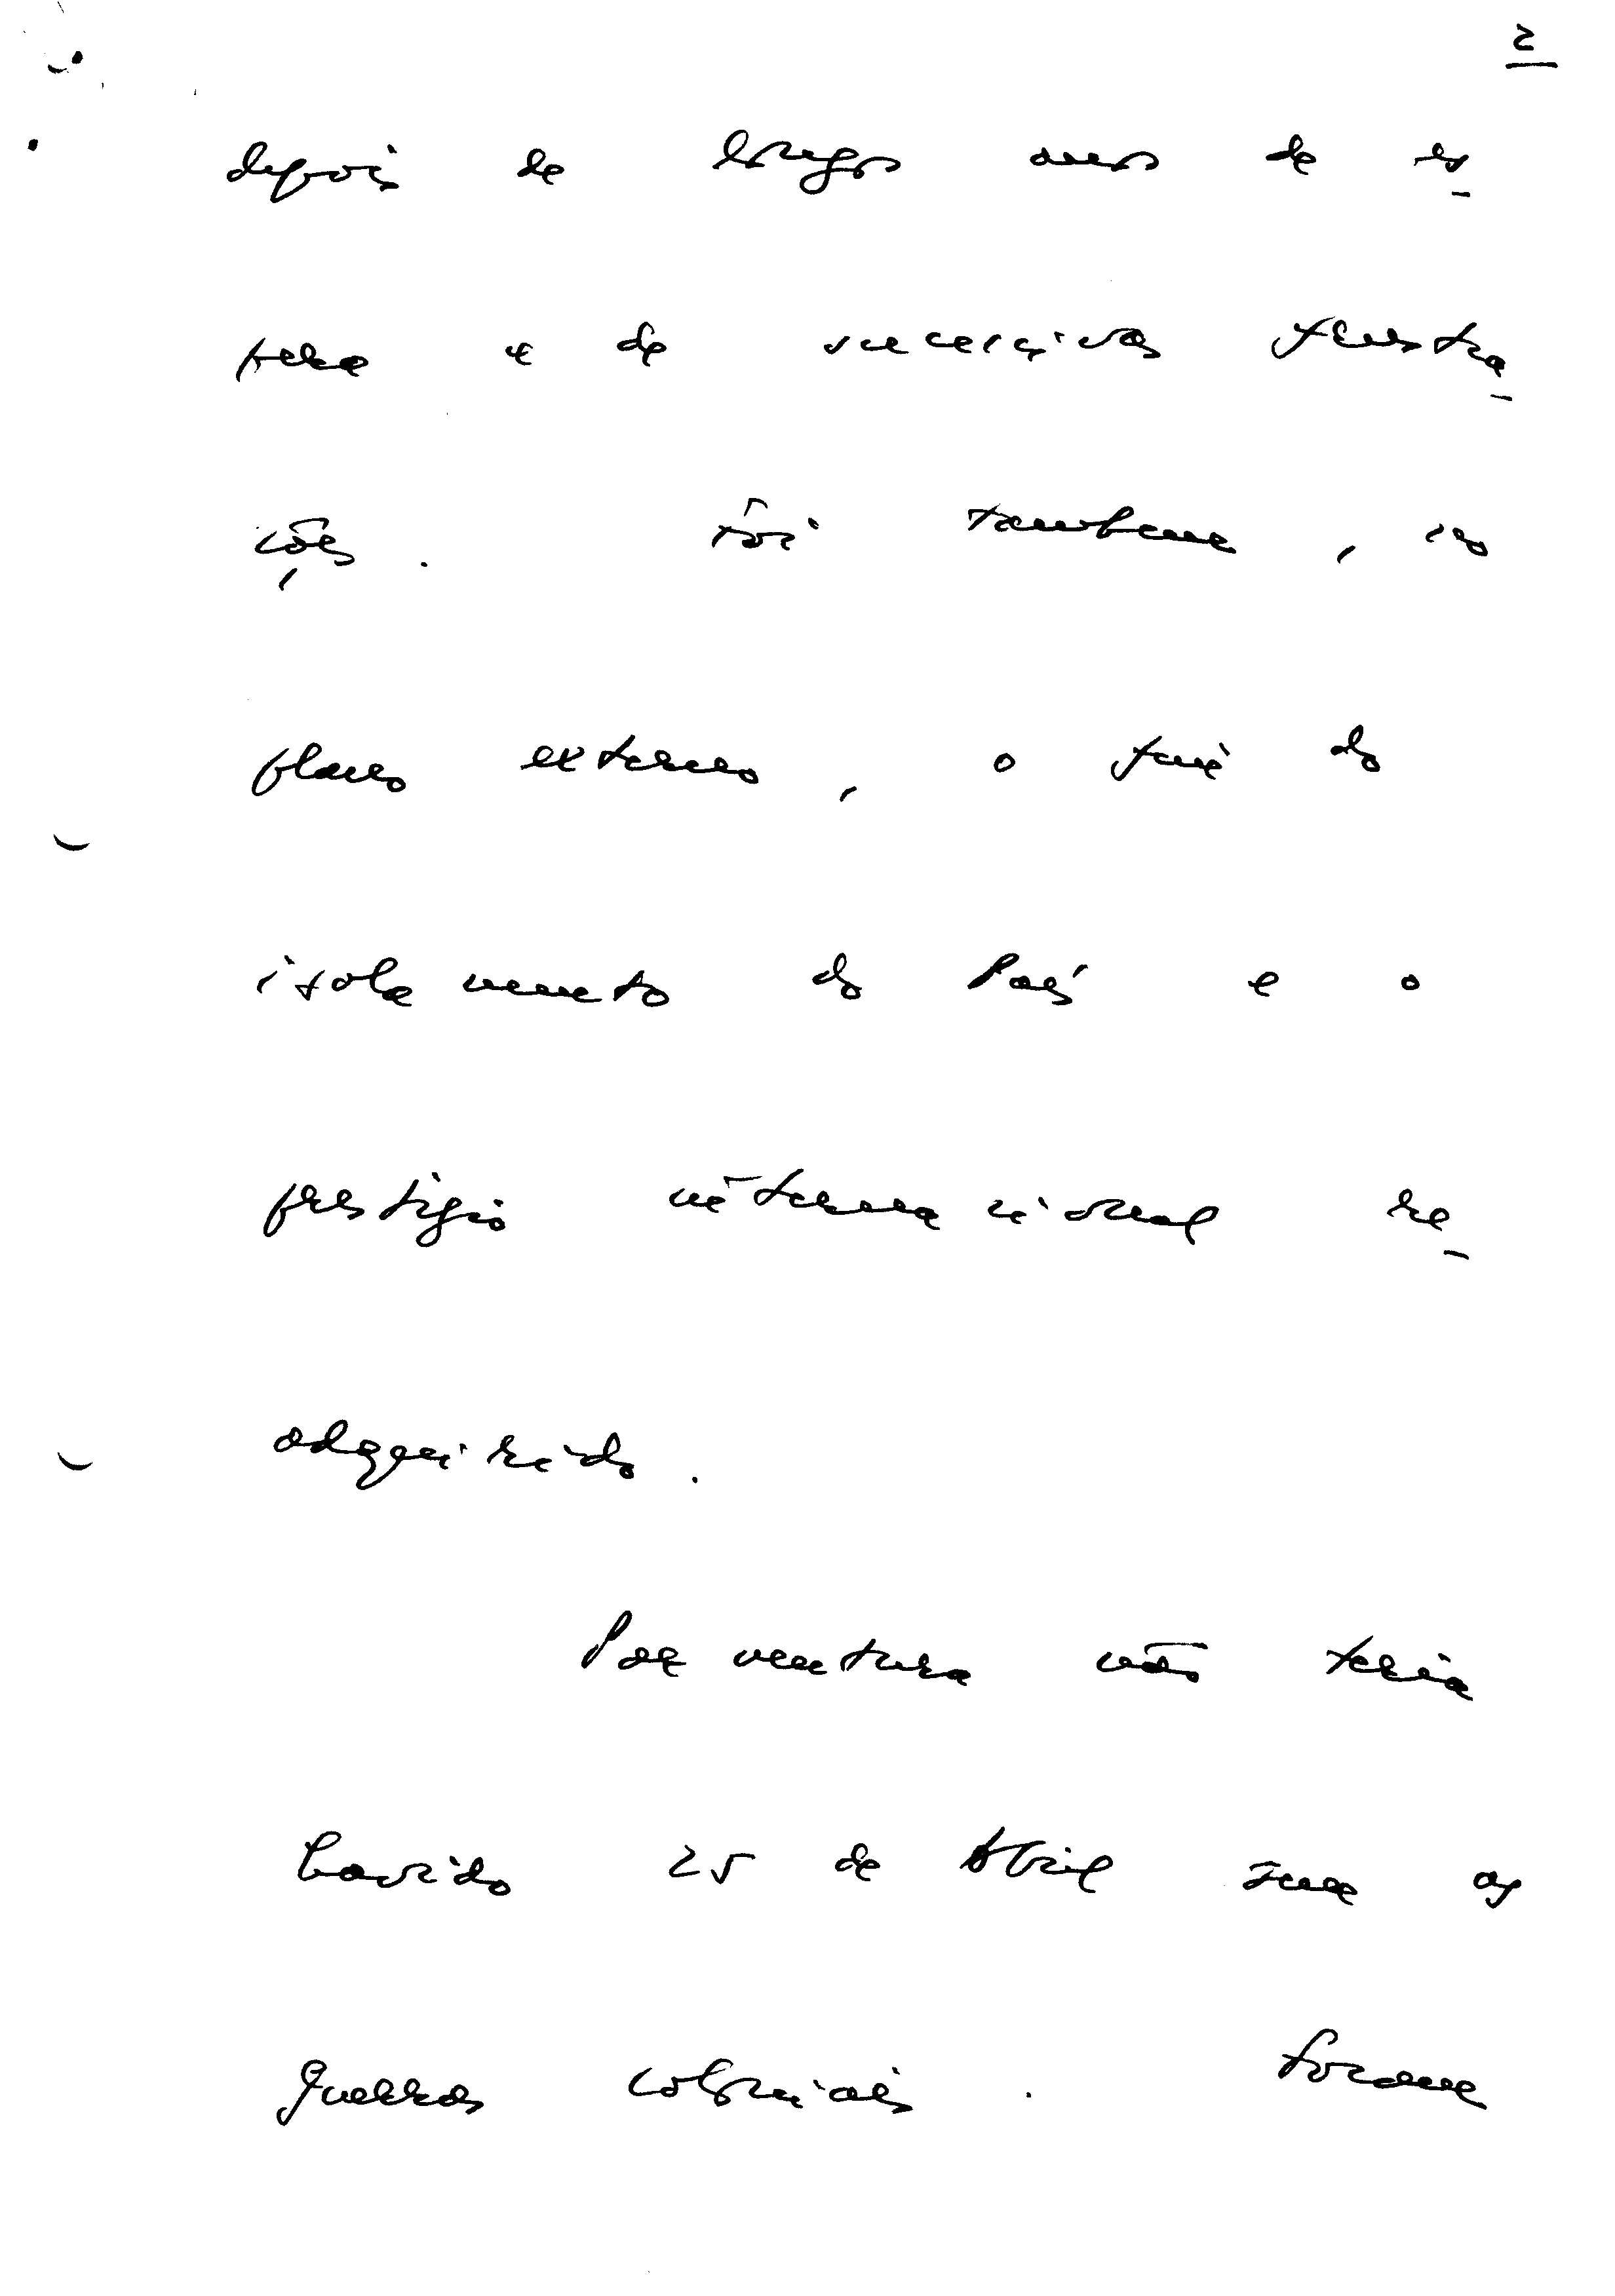 2
depois de longos anos de es-
pera e de sucessivas frustra-
ções. Foi também, no
plano externo, o fim do
isolamento do País e o
prestígio internacional re-
adquirido.
Porventura não teria
havido 25 de Abril sem as
guerras coloniais. Foram